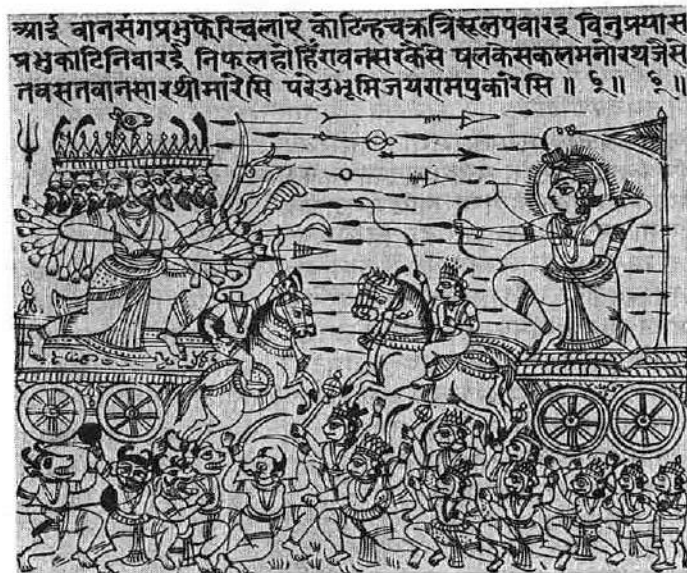 आई वानसंगप्रभुफेरिचलारे कोटिन्हचक्रत्रिसूलपवारइ विनुप्रयास
प्रभुकाटिनिवारई निफलहोहिंरावनसरकैसे षलकेसकलमनोरथजैस
तवसतवानसारथीमारेसि परेउभूमिजयरामपुकारेसि ॥ ६॥ ६॥